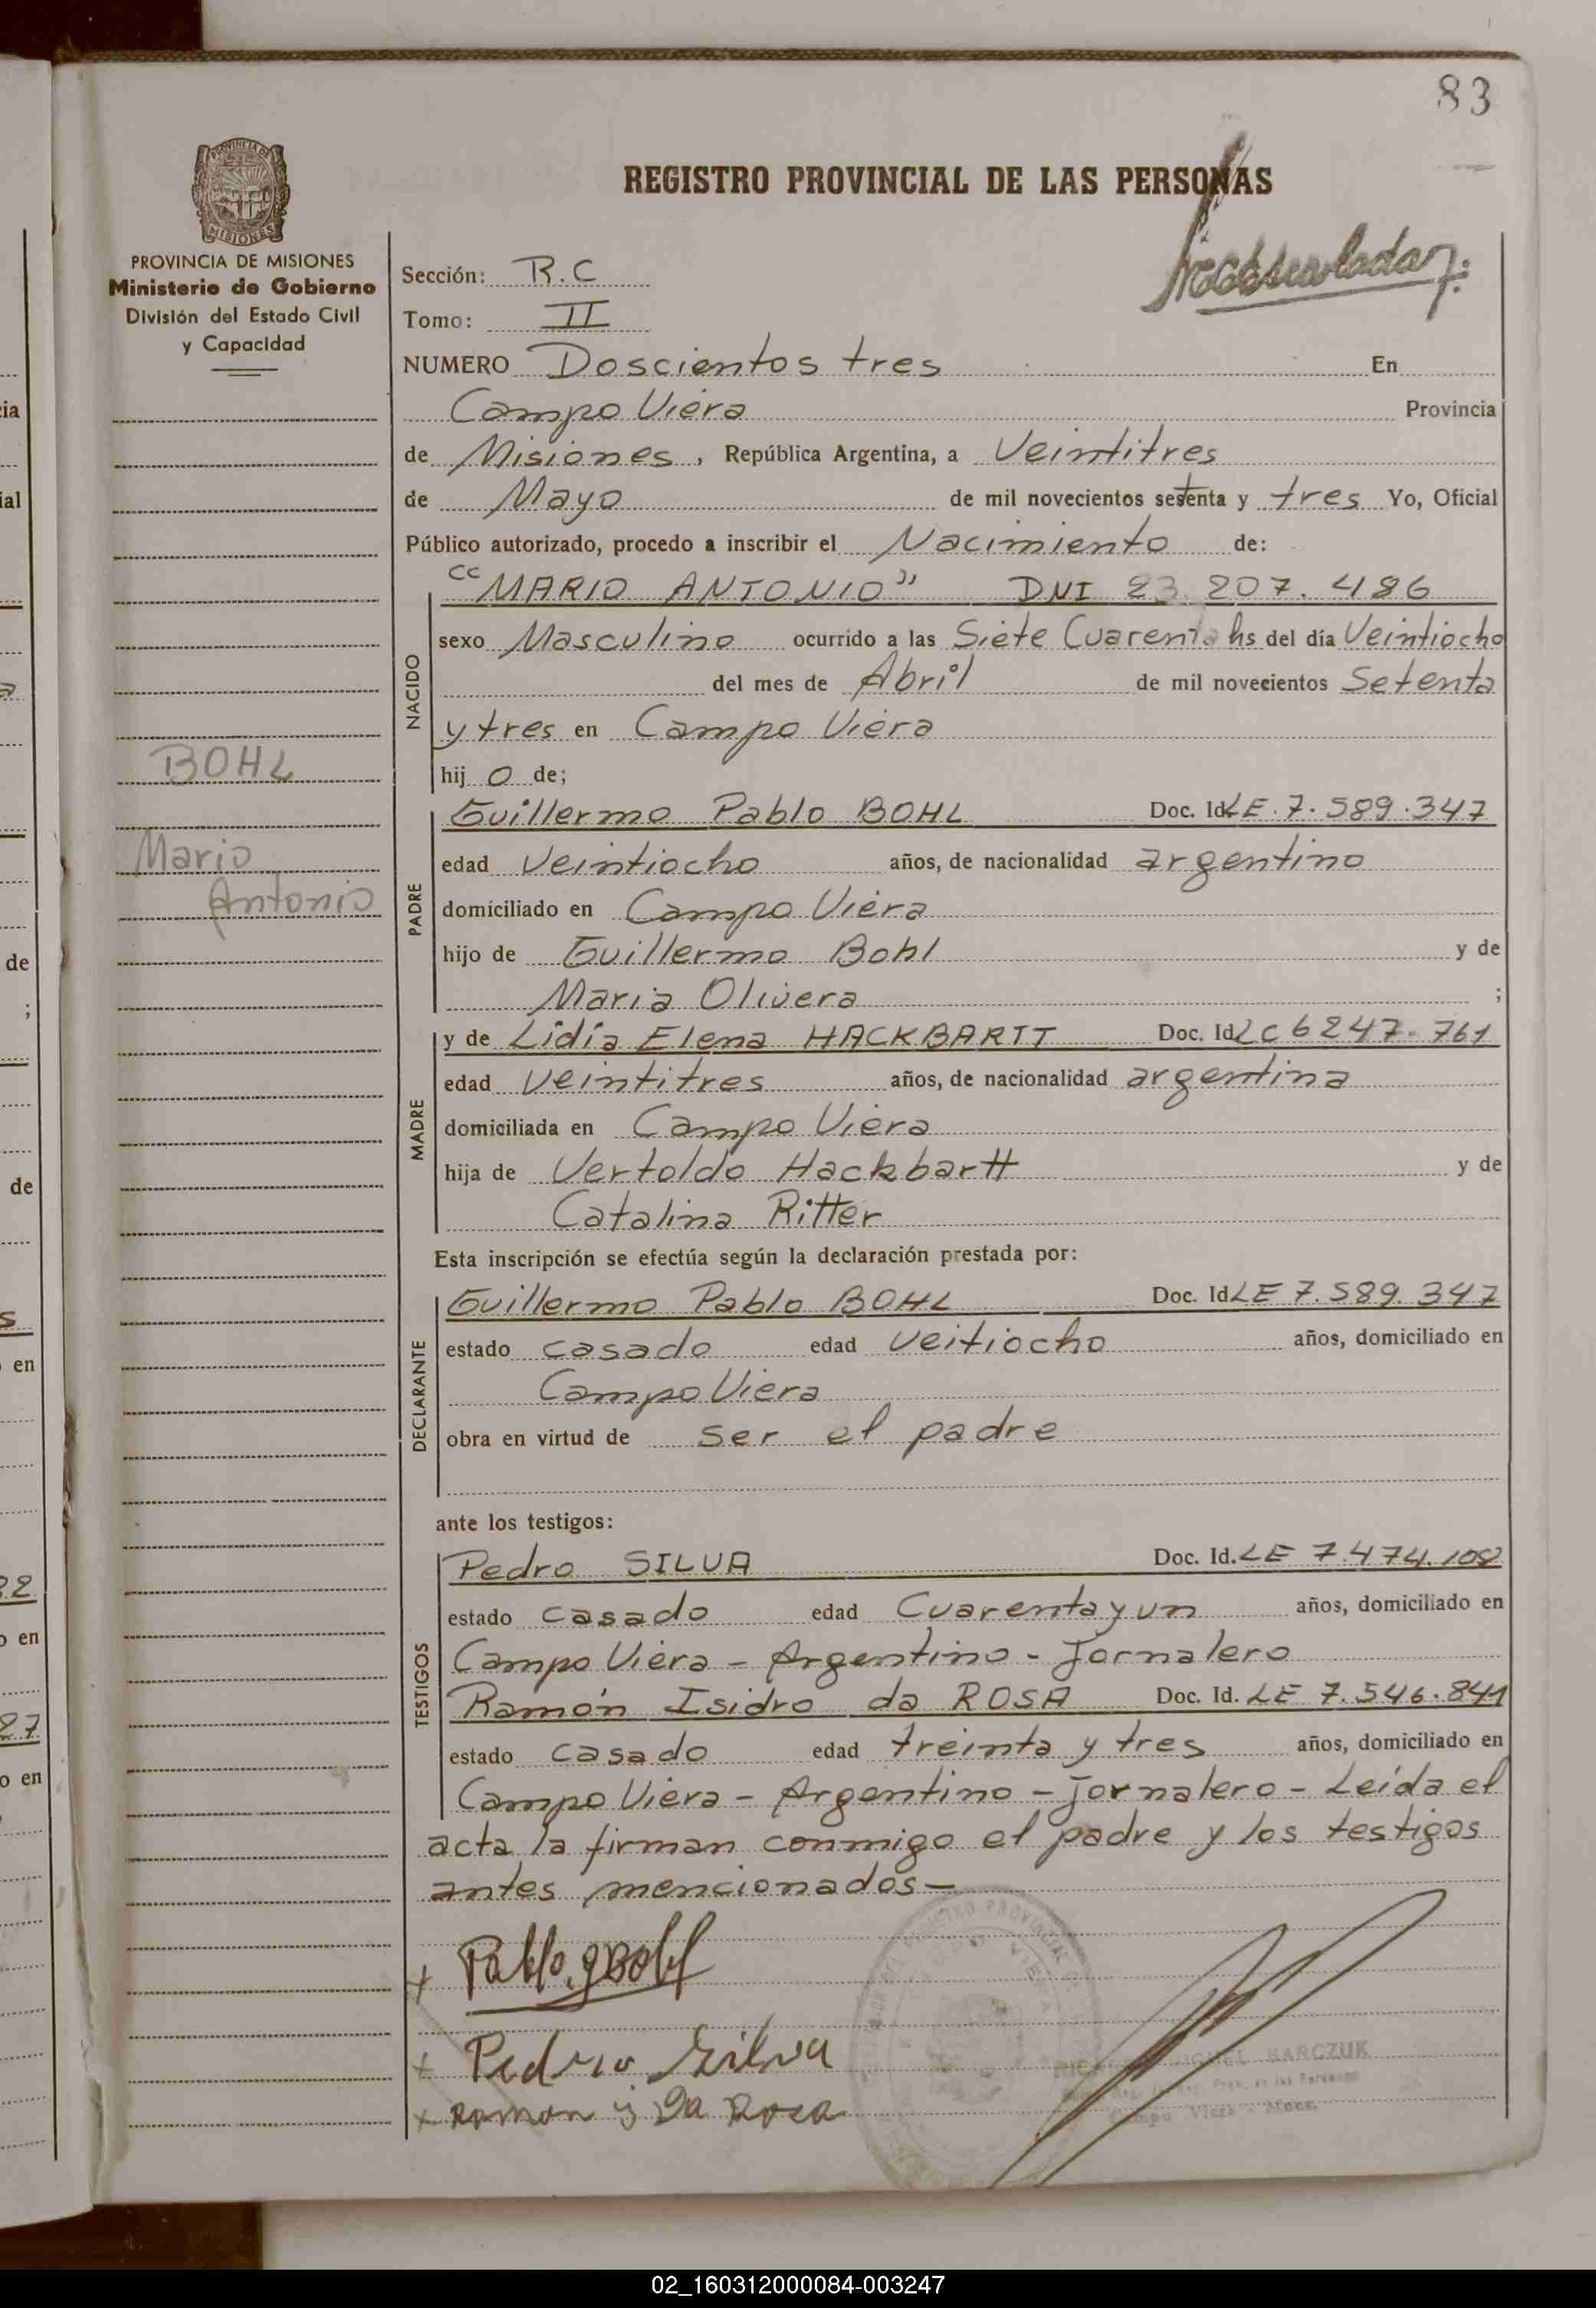 83
REGISTRO PROVINCIAL DE LAS PERSONAS
PROVINCIA DE
MISIONES
PROVINCIA DE MISIONES
Ministerio de Gobierno
División del Estado Civil
y Capacidad
Sección: R.C
Tomo: II
NUMERO Doscientos tres En
Campo Viera Provincia
de Misiones, República Argentina, a Veintitres
de Mayo de mil novecientos setenta y tres Yo, Oficial
Público autorizado, procedo a inscribir el Nacimiento de:
"MARIO ANTONIO" DNI 23.207.486
NACIDO
sexo Masculino ocurrido a las Siete Cuarenta hs del día Veintiocho
del mes de Abril de mil novecientos Setenta
y tres en Campo Viera
BOHL
hij o de;
Guillermo Pablo BOHL Doc. Id LE.7.589.347
Mario
Antonio
PADRE
edad Veintiocho años, de nacionalidad argentino
domiciliado en Campo Viera
hijo de Guillermo Bohl y de
Maria Olivera ;
y de Lidia Elena HACKBARTT Doc. Id LC 6247.761
MADRE
edad Veintitres años, de nacionalidad argentina
domiciliada en Campo Viera
hija de Vertoldo Hackbartt y de
Catalina Ritter
Esta inscripción se efectúa según la declaración prestada por:
Guillermo Pablo BOHL Doc. Id LE 7.589.347
DECLARANTE
estado casado edad veitiocho años, domiciliado en
Campo Viera
obra en virtud de ser el padre
ante los testigos:
Pedro SILVA Doc. Id. LE 7.474.108
TESTIGOS
estado casado edad Cuarenta y un años, domiciliado en
Campo Viera - Argentino - Jornalero
Ramón Isidro da ROSA Doc. Id. LE 7.546.841
estado casado edad treinta y tres años, domiciliado en
Campo Viera - Argentino - Jornalero - Leída el
acta la firman conmigo el padre y los testigos
antes mencionados-
Pablo.g Bohl
Pedro Silva
Ramon i Da Rosa
BARCZUK
Campo Viera - Mnes.
02_160312000084-003247